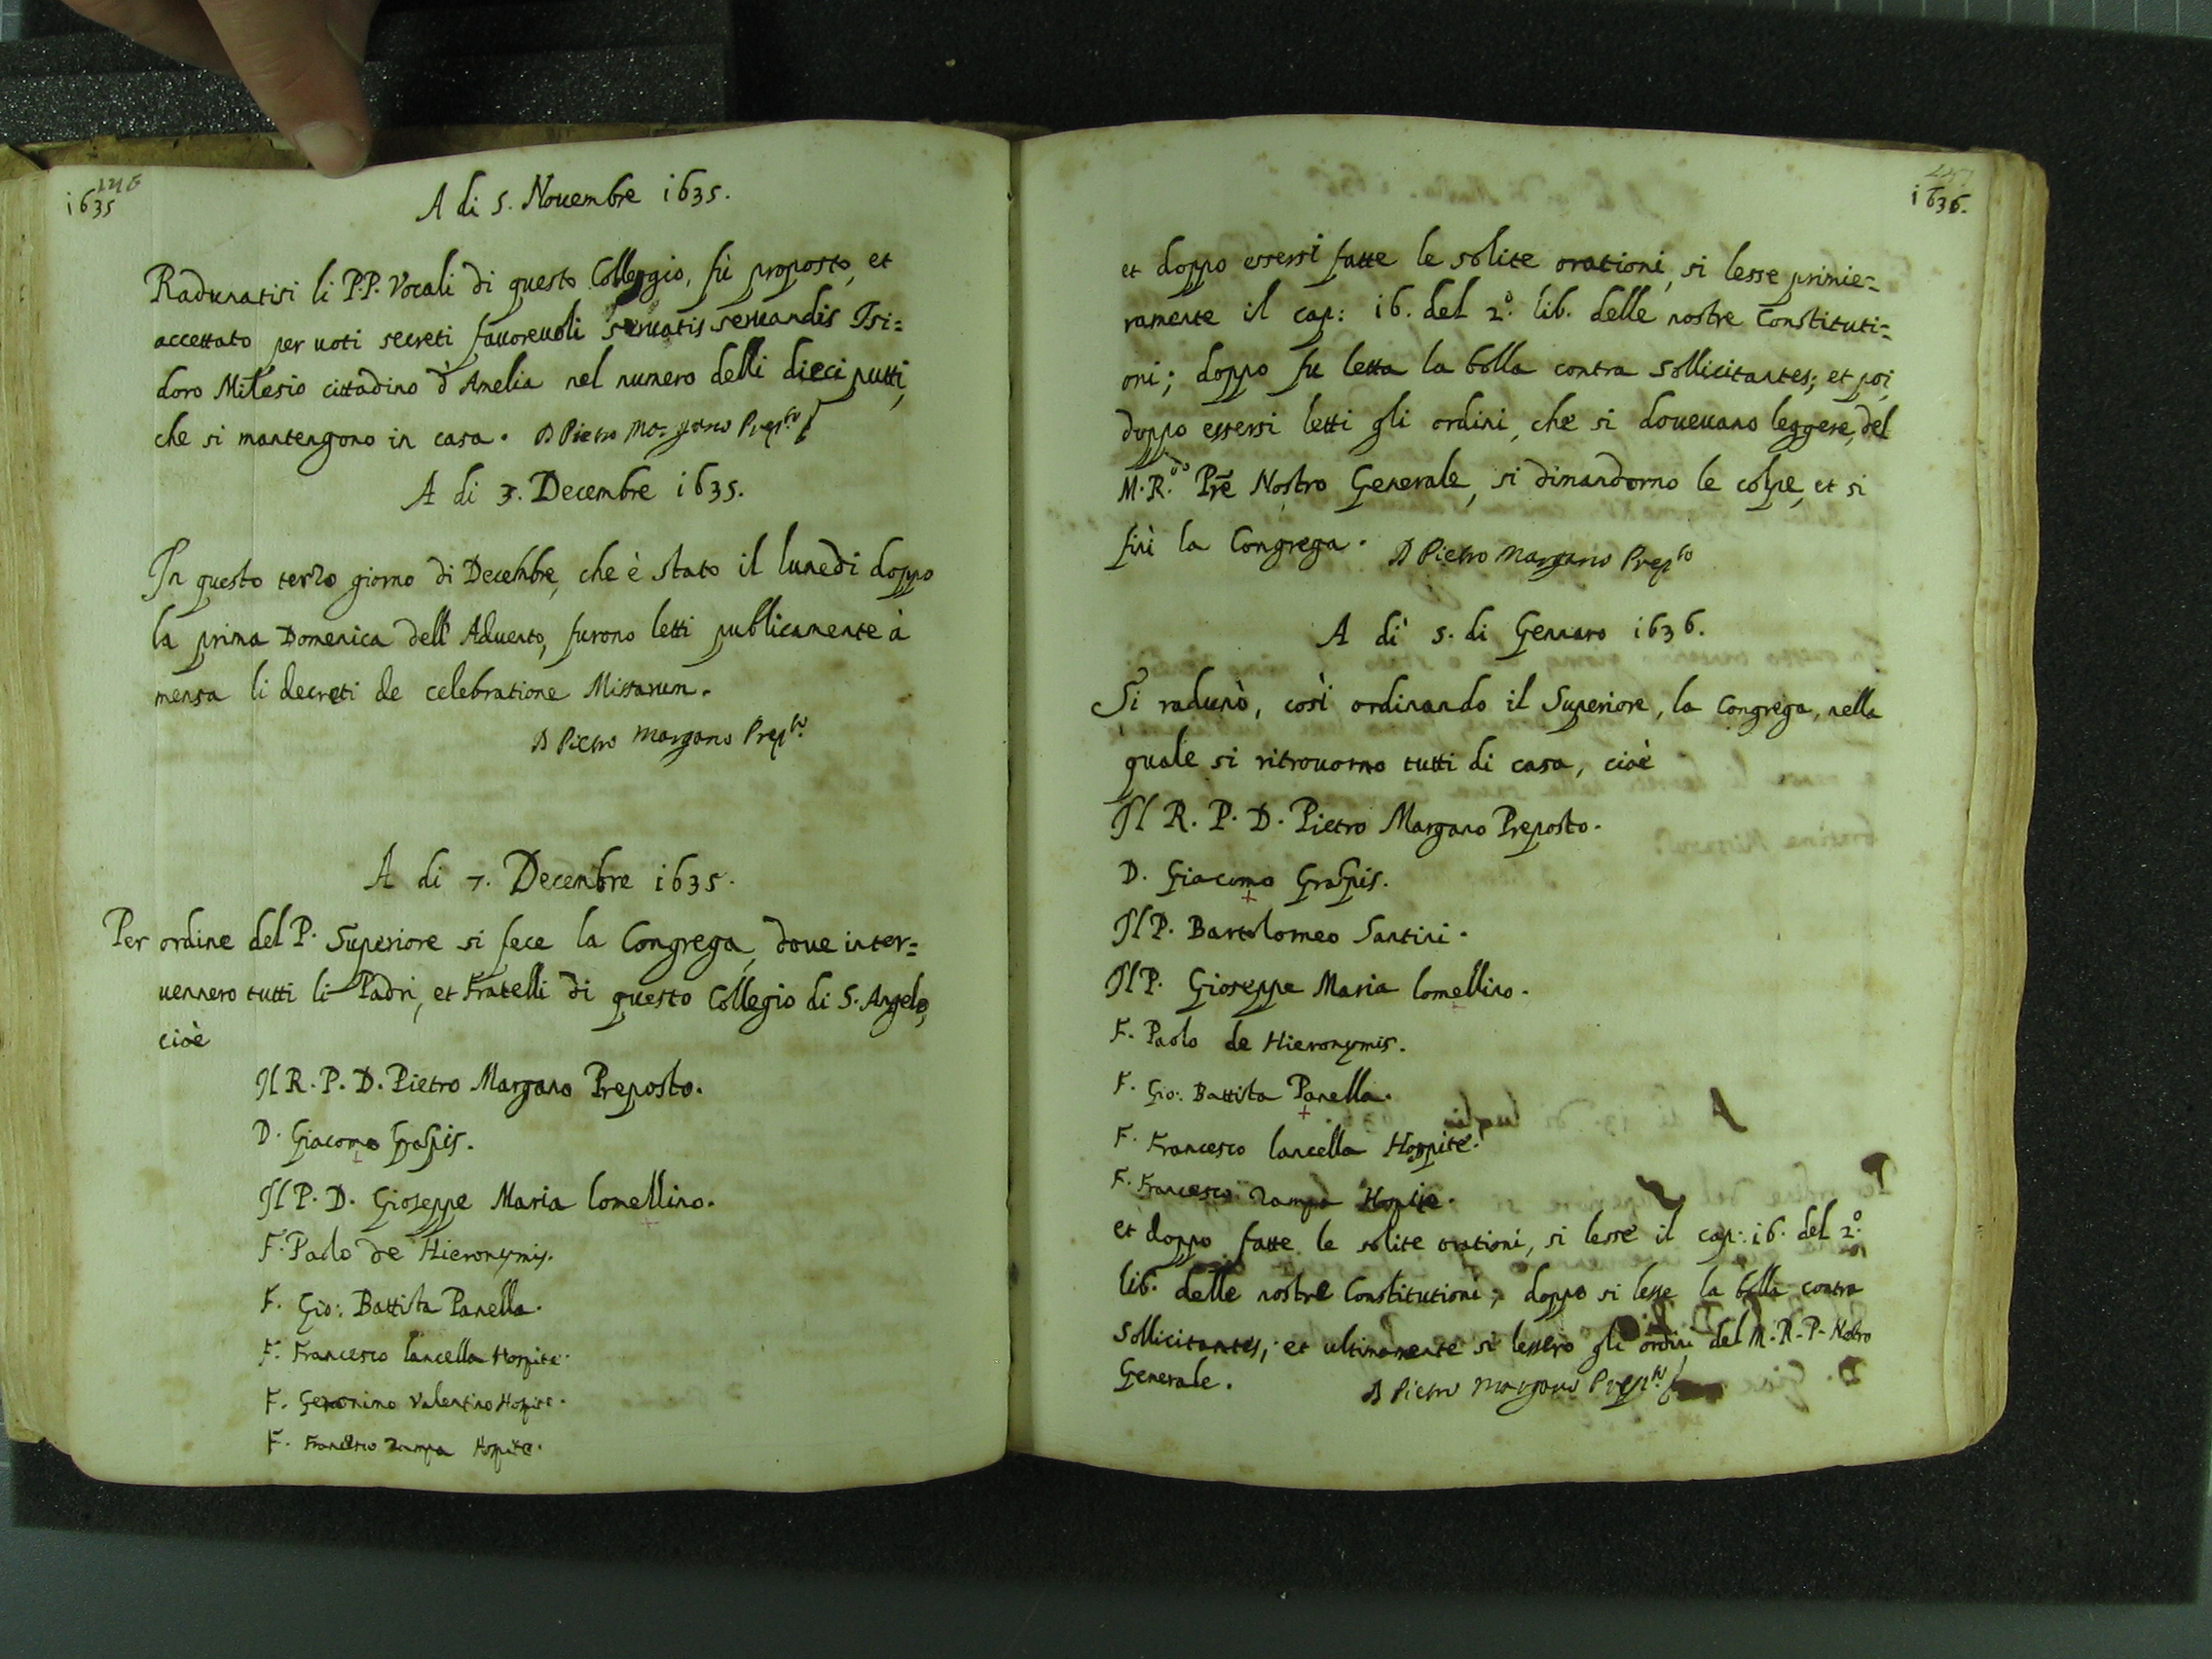 1635
A di 5. Nouembre 1635.
Radunatisi li P.P. Vocali di questo Colleggio, fù proposto, et
accettato per uoti secreti fauoreuoli seruatis seruandis Isi=
doro Milesio cittadino d'Amelia nel numero delli dieci putti,
che si mantengono in casa. D Pietro Margano Prep.to
A di 3. Decembre 1635.
In questo terzo giorno di Decembre, che è stato il lunedi doppo
la prima Domenica dell'Aduento, furono letti publicamente à
mensa li decreti de celebratione Missarum.
D Pietro Margano Prep.to
A di 7. Decembre 1635.
Per ordine del P. Superiore si fece la Congrega, doue inter=
uennero tutti li Padri, et Fratelli di questo Collegio di S. Angelo,
cioè
Il R. P. D. Pietro Margano Preposto.
D. Giacomo
Il P. D. Gioseppe Maria lomellino.
F. Paolo de Hieronymis.
F. Gio: Battista Panella.
F. Francesco lancella Hospite.
F. Geronimo Valentino Hospite.
F. Francesco Zampa Hospite.
1636.
et doppo essersi fatte le solite orationi, si lesse primie=
ramente il cap: 16. del 2.º lib. delle nostre Constituti=
oni; doppo fu letta la bolla contra sollicitantes; et poi
doppo essersi letti gli ordini, che si doueuano leggere, del
M.R.do Prē Nostro Generale, si dimandorno le colpe, et si
finì la Congrega. D Pietro Margano Prep.to
A di 5. di Gennaro 1636.
Si radunò, così ordinando il Superiore, la Congrega, nella
quale si ritrouorno tutti di casa, cioè
Il R. P. D. Pietro Margano Preposto.
D. Giacomo
Il P. Bartolomeo Santini.
Il P. Gioseppe Maria lomellino.
F. Paolo de Hieronymis.
F. Gio: Battista Panella.
F. Francesco lancella Hospite.
F. Francesco Zampa Hospite.
et doppo fatte le solite orationi, si lesse il cap: 16. del 2.º
lib. delle nostre Constitutioni; doppo si lesse la bolla contra
sollicitantes; et ultimamente si lessero gli ordini del M.R.P. Nostro
Generale. D Pietro Margano Prep.to